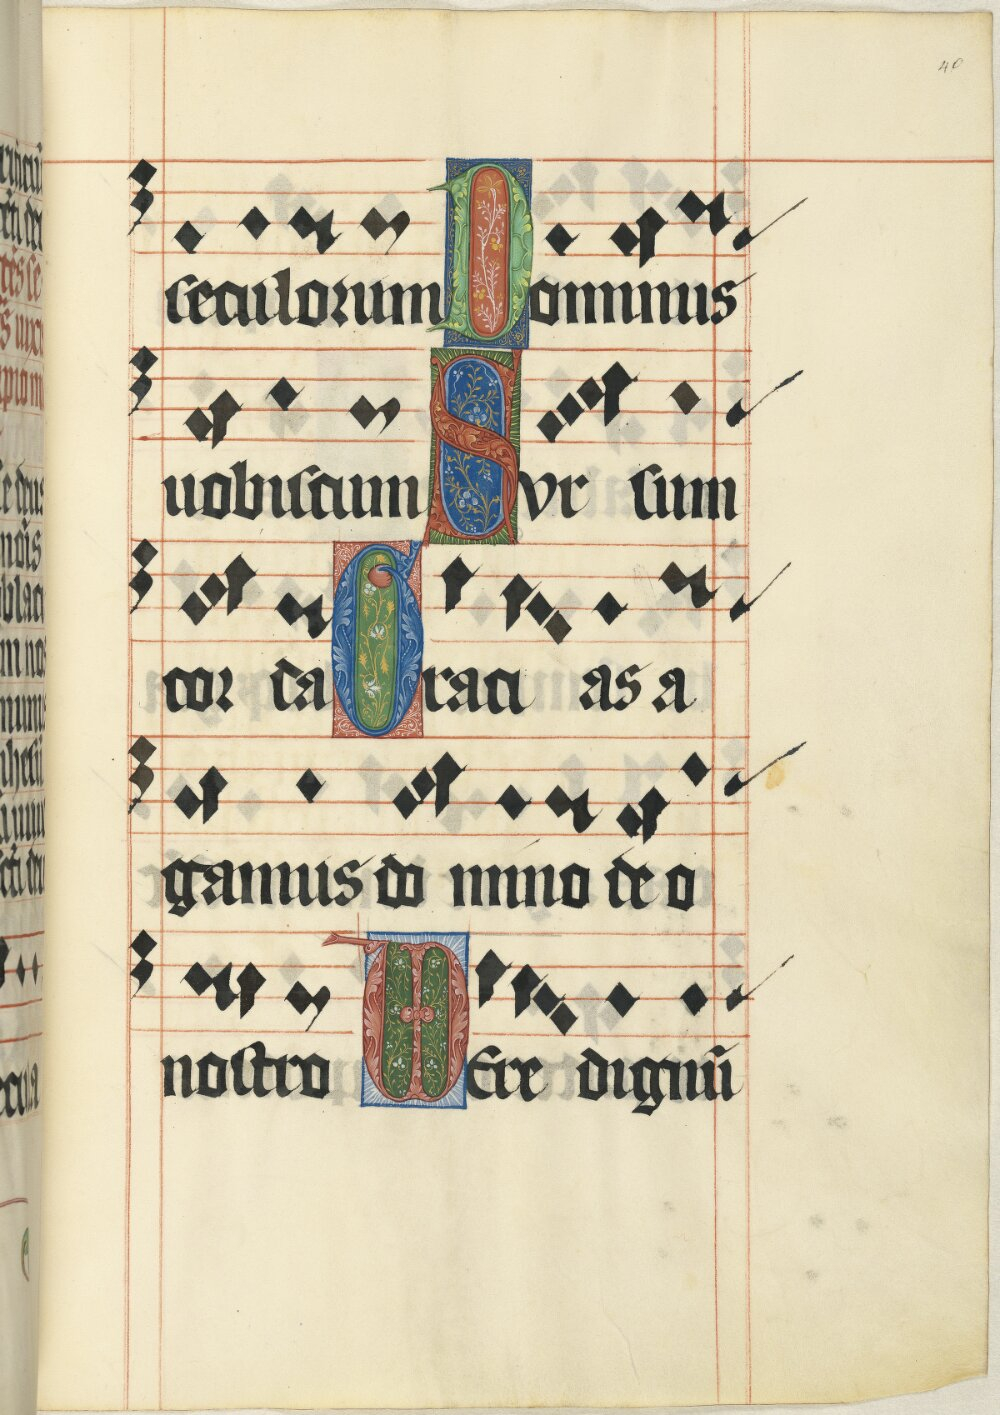 40
seculorum Dominus
uobiscum Svr sum
cor da Graci as a
gamus do mino deo
nostro Vere dignū